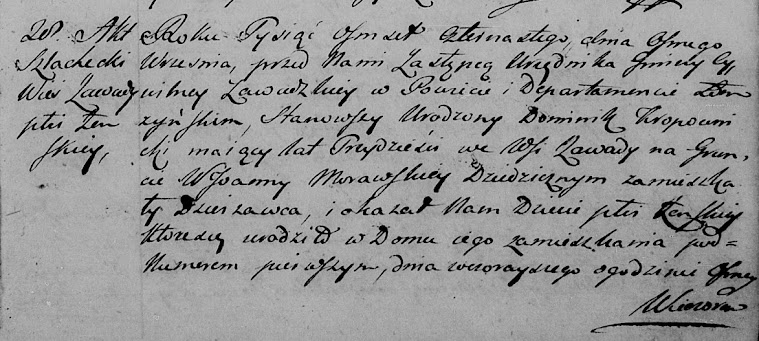 28. Akt
Szlachecki
Wieś Zawady
płci żeń
skiey,
Roku Tysiąc Osmset czternastego, dnia Osmego
Września, przed Nami Zastępcą Urzędnika Gminy Cy
wilney Zawadzkiey w Powiecie i Departamencie Łom
żyńskim, Stanowszy Urodzony Dominik Kropiwni
cki maiący lat Trzydzieści we Wsi Zawady na Grun
cie W Joanny Morawskiey Dziedzicznym zamieszka
ły Dzierzawca, i okazał Nam Dziecię płci żeńskiey
które się urodziło w Domu iego zamieszkania pod
Numerem pierwszym, dnia wczorayszego o godzinie Osmey
Wieczorem